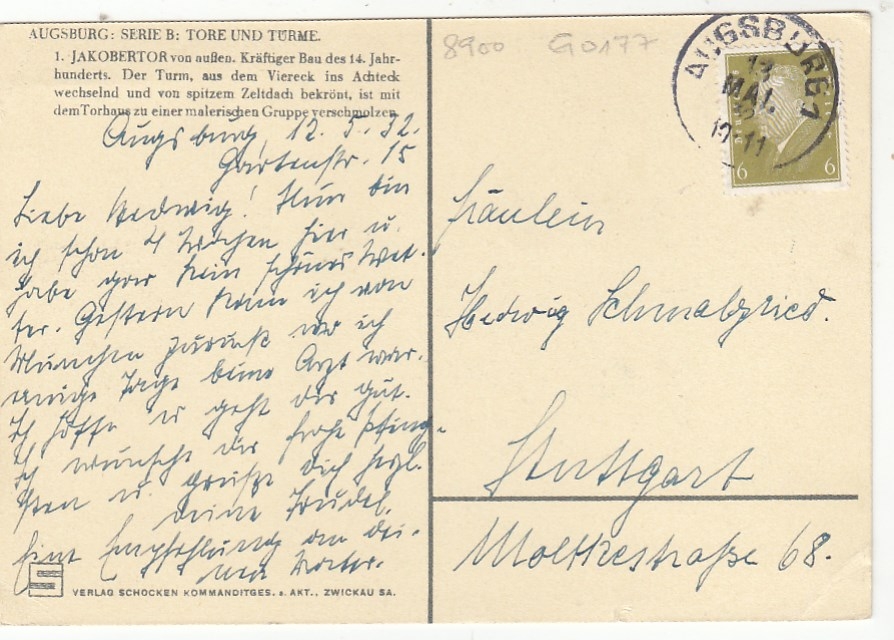 AUGSBURG: SERIE B: TORE UND TÜRME.
1. JAKOBERTOR von außen. Kräftiger Bau des 14. Jahr-
hunderts. Der Turm, aus dem Viereck ins Achteck
wechselnd und von spitzem Zeltdach bekrönt, ist mit
dem Torhaus zu einer malerischen Gruppe verschmolzen.
Augsburg, 12. 5. 32.
Gartenstr. 15
Liebe Hedwig! Nun bin
ich schon 4 Wochen hier u.
habe gar kein schönes Wet-
ter. Gestern kam ich von
München zurück wo ich
einige Tage beim Arzt war.
Ich hoffe es geht dir gut.
Ich wünsche dir frohe Pfing-
sten u. grüße dich herzl.
deine Trudel.
Eine Empfehlung an dei-
ne Mutter.
VERLAG SCHOCKEN KOMMANDITGES. a. AKT., ZWICKAU SA.
8900 GO177
AUGSBURG 1
13
MAI
6 6
Fräulein
Hedwig
Stuttgart
Moltkestraße 68.